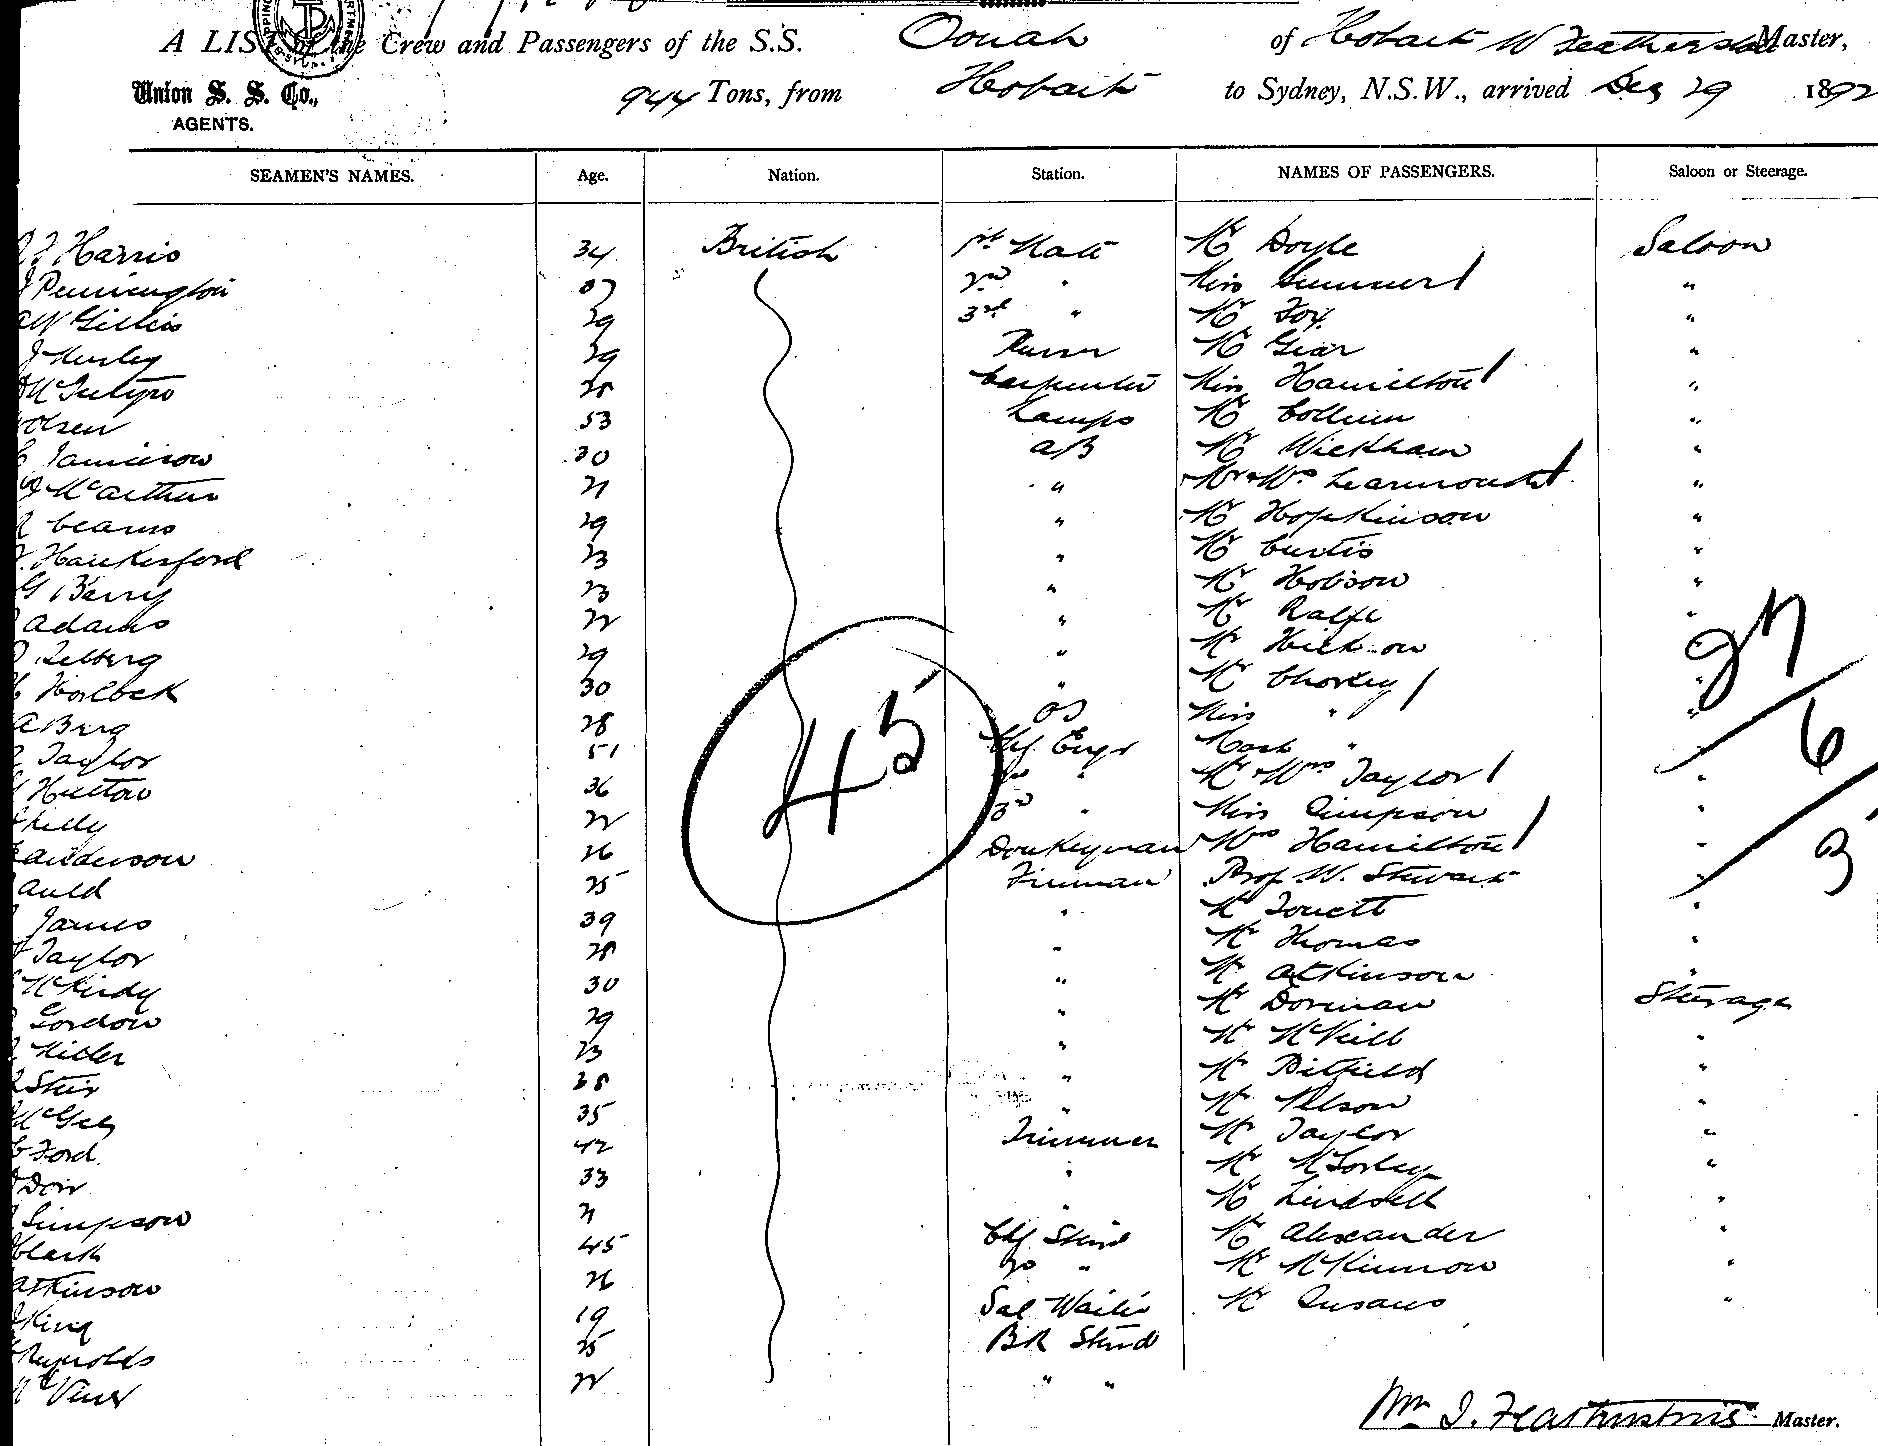 A LIST of the Crew and Passengers of the S.S. Oonah of Hobart W Featherstone Master,
Union S. S. Co., AGENTS. 944 Tons, from Hobart to Sydney, N.S.W., arrived Dec 29 1892
SEAMEN'S NAMES. Age. Nation. Station. NAMES OF PASSENGERS. Saloon or Steerage.
Harris 34 British 1st Mate Mr Doyle Saloon
Pennington 2nd " Miss "
AW Gillies 29 3rd " Mr Fox "
29 Purser Mr Gear "
28 Carpenter Miss Hamilton "
Olsen 53 Lamps Mr Collum "
Jamieson 30 AB Mr Wickham "
McArthur 21 " Mr & Mrs Learmouth "
Cearns 29 " Mr Hopkinson "
Hankerford 23 " Mr Curtis "
G Berry 23 " Mr Hobson "
Adams 22 " Mr Ralfe "
29 " Mr Hickson "
Horlock 30 " Mr Chorley "
A Berg 28 OS Miss " "
Taylor 51 Chf Engr Mast " "
Hutton 36 2nd " Mr & Mrs Taylor "
Kelly 22 3rd " Miss Simpson "
Anderson 26 Donkeyman Mrs Hamilton "
Auld 25 Fireman Prof W. Stewart "
James 39 " Mr "
Taylor 28 " Mr Thomas "
McKirdy 30 " Mr Atkinson "
Gordon 29 " Mr Dorman Steerage
Miller 23 " Mr McNeill "
38 " Mr Pitfield "
McGee 35 " Mr Nelson "
Ford 42 Trimmer Mr Taylor "
33 " Mr McSorley "
Simpson 21 " Mr "
Clark 45 Chf Stewd Mr Alexander "
Atkinson 26 2nd " Mr McKinnon "
King 19 Sal Waiter Mr Susans "
Reynolds 25 BR Stewd
22 " "
45
27
6
3
Wm J. Featherstone Master.